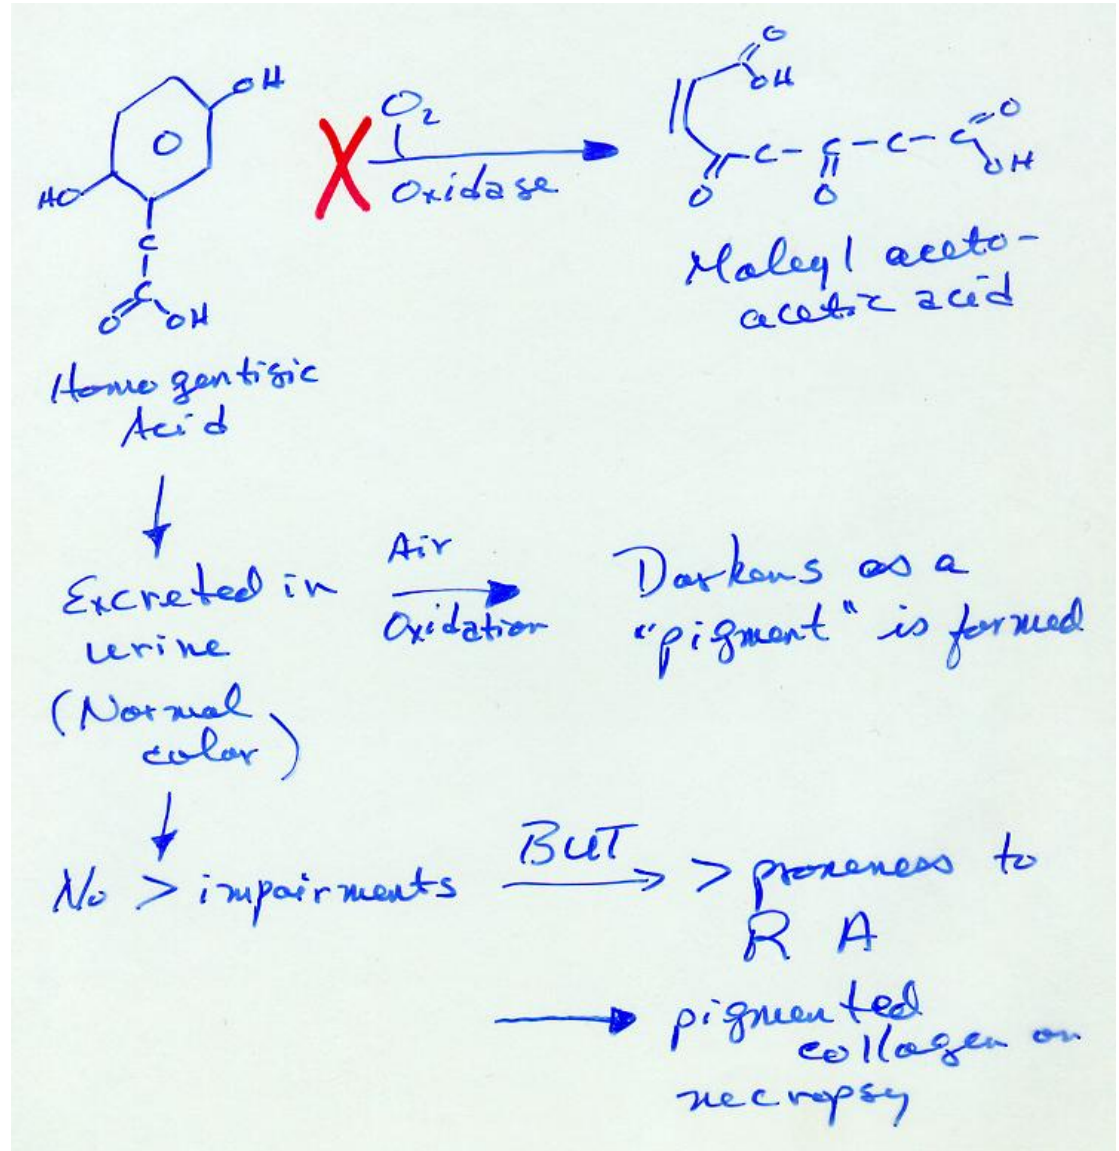 OH
HO
C
C
O
OH
Homogentisic
Acid
X
O2
Oxidase
O
OH
O
C - C - C - C
O
O
OH
Maleyl aceto-
acetic acid
Excreted in
urine
(Normal
color)
Air
Oxidation
Darkens as a
"pigment" is formed
No > impairments
BUT
> proneness to
R A
pigmented
collagen on
necropsy